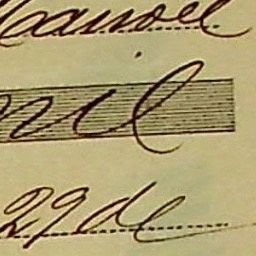 Manoel
mil
29 de